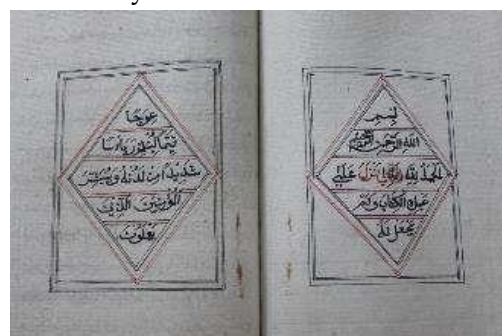 بسم
الله الرحمن الرحيم
الحمد لله الذي انزل على
عبده الكتاب ولم
يجعل له
عوجا
قيما لينذر باسا
شديدا من لدنه ويبشر
المؤمنين الذين
يعلمون